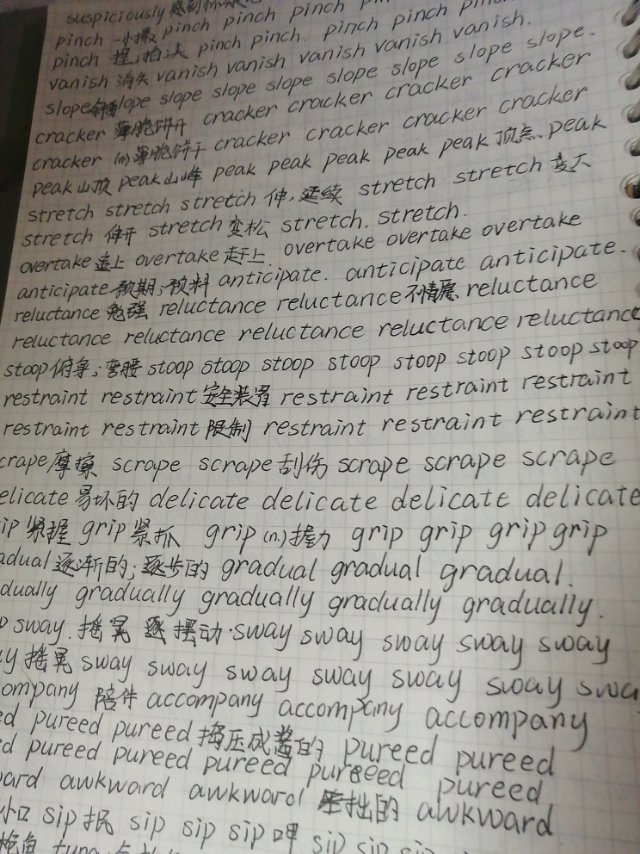 suspiciously 感到
pinch 一小撮 pinch pinch pinch pinch
pinch 捏;掐 pinch pinch. pinch pinch pinch
vanish 消失 vanish vanish vanish vanish vanish.
slope slope slope slope slope slope slope slope.
cracker 薄脆饼干 cracker cracker cracker cracker
cracker (n) 薄脆饼干 cracker cracker cracker cracker
peak 山顶 peak 山峰 peak peak peak peak peak 顶点. peak
stretch stretch stretch 伸,延续 stretch stretch 变大
stretch 伸开 stretch 变松 stretch. stretch.
overtake 追上 overtake 赶上. overtake overtake overtake
anticipate 预期;预料 anticipate. anticipate anticipate.
reluctance 勉强 reluctance reluctance 不情愿 reluctance
reluctance reluctance reluctance reluctance reluctance
stoop 俯身;弯腰 stoop stoop stoop stoop stoop stoop stoop stoop
restraint restraint 安全装置 restraint restraint restraint
restraint restraint 限制 restraint restraint restraint
crape 摩擦 scrape scrape 刮伤 scrape scrape scrape
elicate 易坏的 delicate delicate delicate delicate
ip 紧握 grip 紧抓 grip (n.) 握力 grip grip grip grip
adual 逐渐的;逐步的 gradual gradual gradual.
dually gradually gradually gradually gradually.
sway. 摇晃 摆动. sway sway sway sway sway
ay 摇晃 sway sway sway sway sway sway swa
ompany 陪伴 accompany accompany accompany
ed pureed pureed 捣压成酱的 pureed pureed
ed pureed pureed pureed pureeed pureed
ward awkward awkward 拙的 awkward
小口 sip 抿 sip sip sip 呷 sip sip sip
tuna